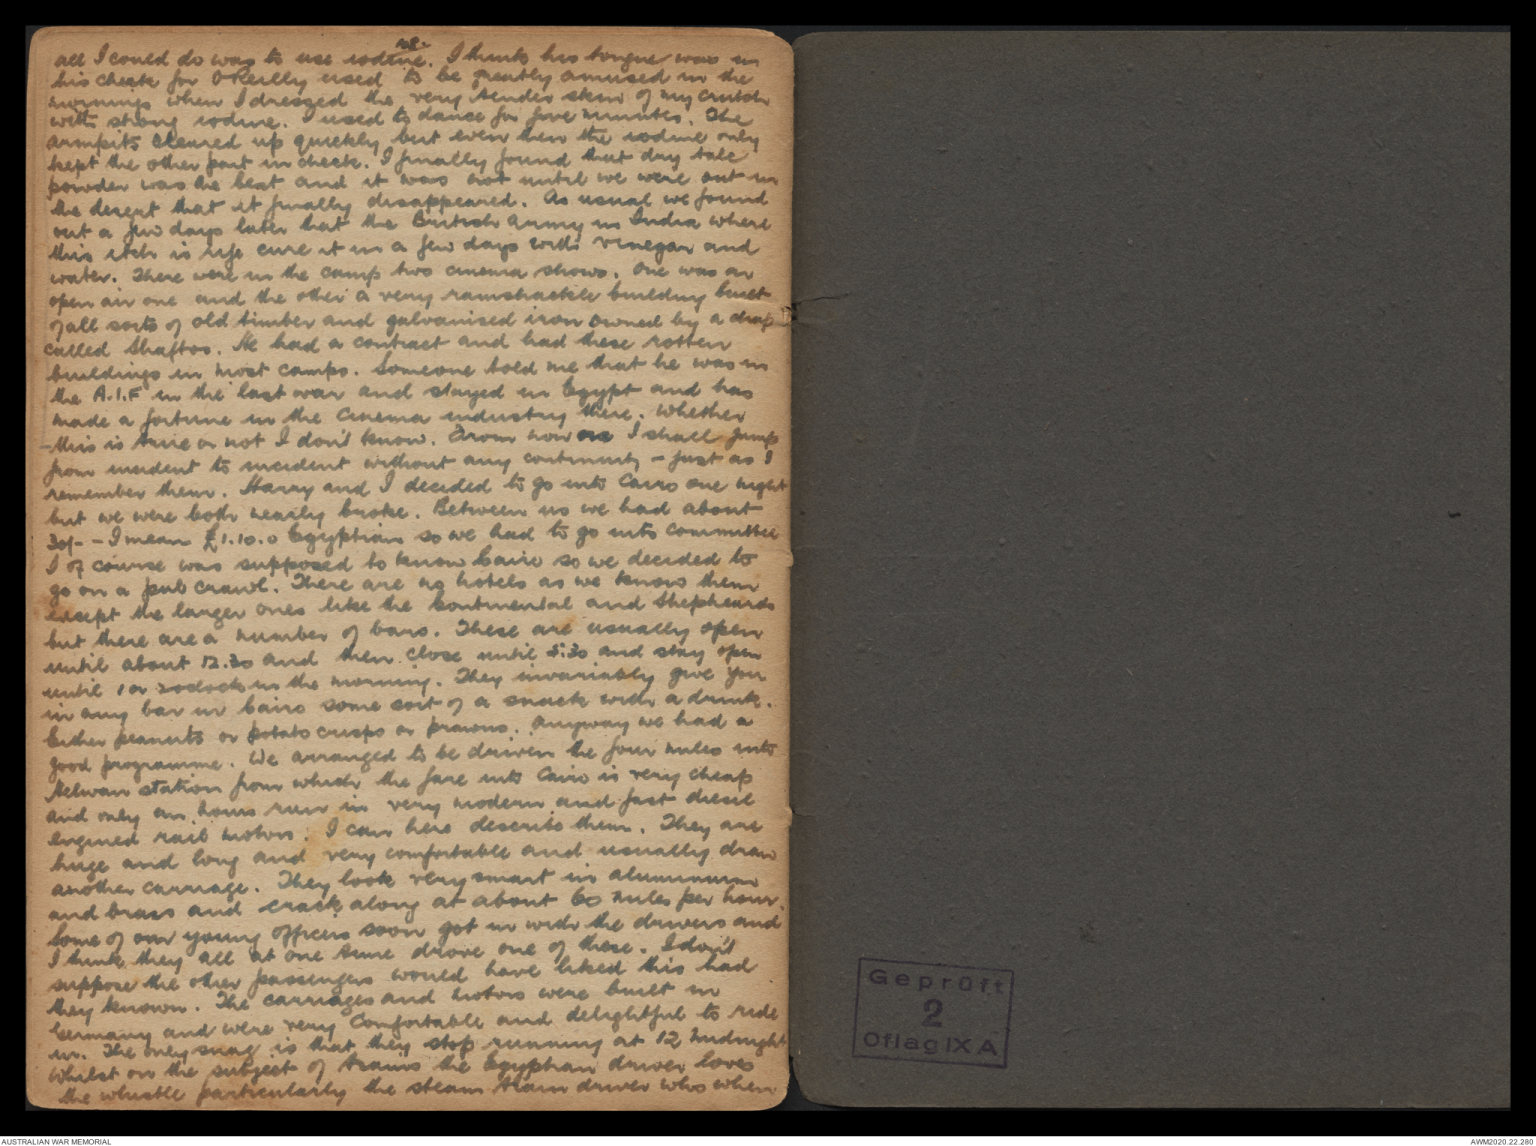 28.
all I could do was to use iodine. I think his tongue was in
his cheek for O'Reilly used to be greatly amused in the
mornings when I dressed the very tender skin of my crutch
with strong iodine. I used to dance for five minutes. The
armpits cleared up quickly but even then the iodine only
kept the other part in check. I finally found that day talc
powder was the best and it was not until we were out in
the desert that it finally disappeared. As usual we found
out a few days later that the British Army in India where
this itch is rife cure it in a few days with vinegar and
water. There were in the camp two cinema shows. One was an
open air one and the other a very ramshackle building built
of all sorts of old timber and galvanised iron owned by a chap
called Shaftos. He had a contract and had these rotten
buildings in most camps. Someone told me that he was in
the A.I.F in the last war and stayed in Egypt and has
made a fortune in the cinema industry there. Whether
this is true or not I don't know. From now on I shall jump
from incident to incident without any continuity - just as I
remember them. Harry and I decided to go into Cairo one night
but we were both nearly broke. Between us we had about
30/- - I mean £1.10.0 Egyptian so we had to go into committee
I of course was supposed to know Cairo so we decided to
go on a pub crawl. There are no hotels as we know them
except the larger ones like the Continental and Shepheards
but there are a number of bars. These are usually open
until about 12.30 and then close until 5.30 and stay open
until 1 or 2 oclock in the morning. They invariably give you
in any bar in Cairo some sort of a snack with a drink.
Either peanuts or potato crisps or prawns. Anyway we had a
good programme. We arranged to be driven the four miles into
Helwan station from which the fare into Cairo is very cheap
and only an hours run in very modern and fast diesel
engined rail motors. I can here describe them. They are
huge and long and very comfortable and usually draw
another carriage. They look very smart in aluminium
and brass and crack along at about 60 miles per hour.
Some of our young officers soon got in with the drivers and
I think they all at one time drove one of these. I don't
suppose the other passengers would have liked this had
they known. The carriages and motors were built in
Germany and were very comfortable and delightful to ride
in. The only snag is that they stop running at 12 midnight
Whilst on the subject of trains the Egyptian driver loves
the whistle particularly the steam train driver who when
Geprüft
2
Oflag IX A
AUSTRALIAN WAR MEMORIAL
AWM2020.22.280